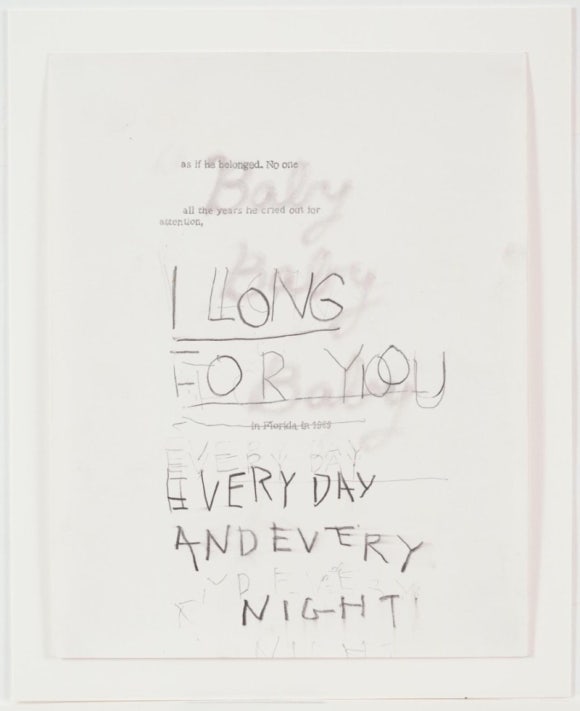 as if he belonged. No one
Baby
all the years he cried out for
attention,
Baby
I LONG
FOR YOU
Baby
in Florida in 1969
EVERY DAY
EVERY DAY
AND EVERY
AND EVERY
NIGHT
NIGHT